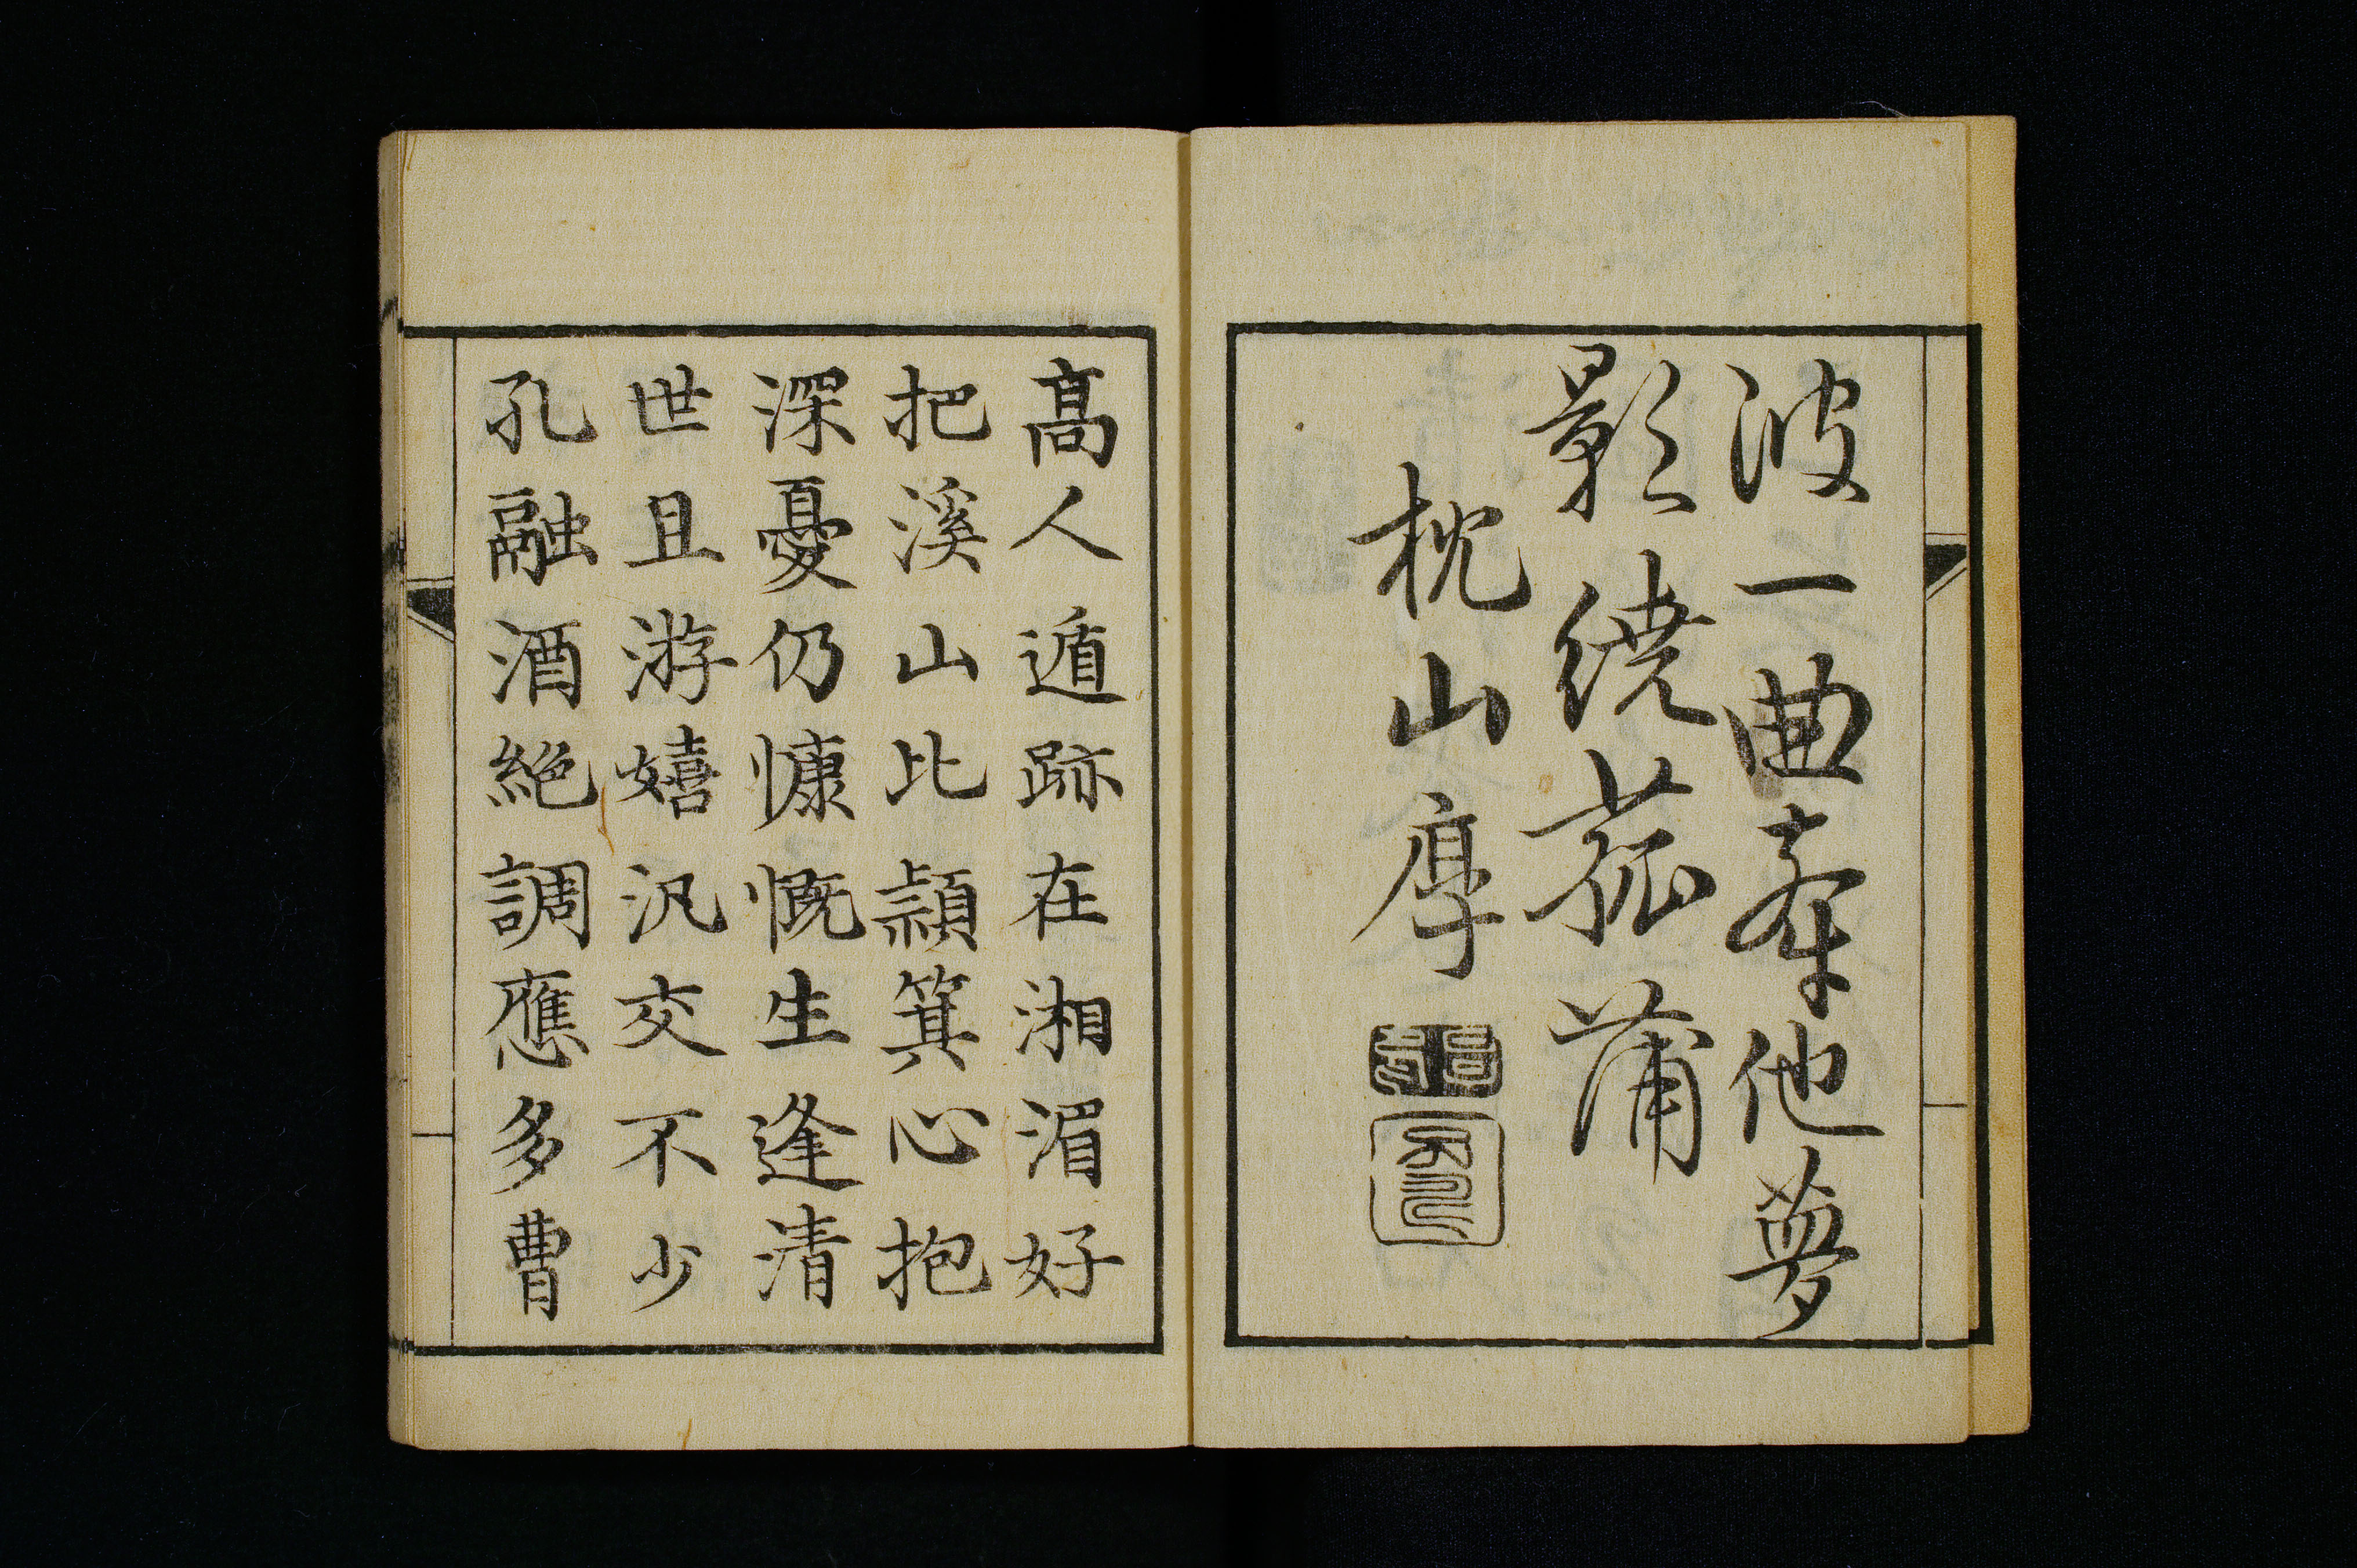 波一曲牽他夢
影繞菰蒲
枕山厚
髙人遁跡在湘湄好
把溪山比潁箕心抱
深憂仍慷慨生逢清
世且游嬉汎交不少
孔融酒絕調應多曹